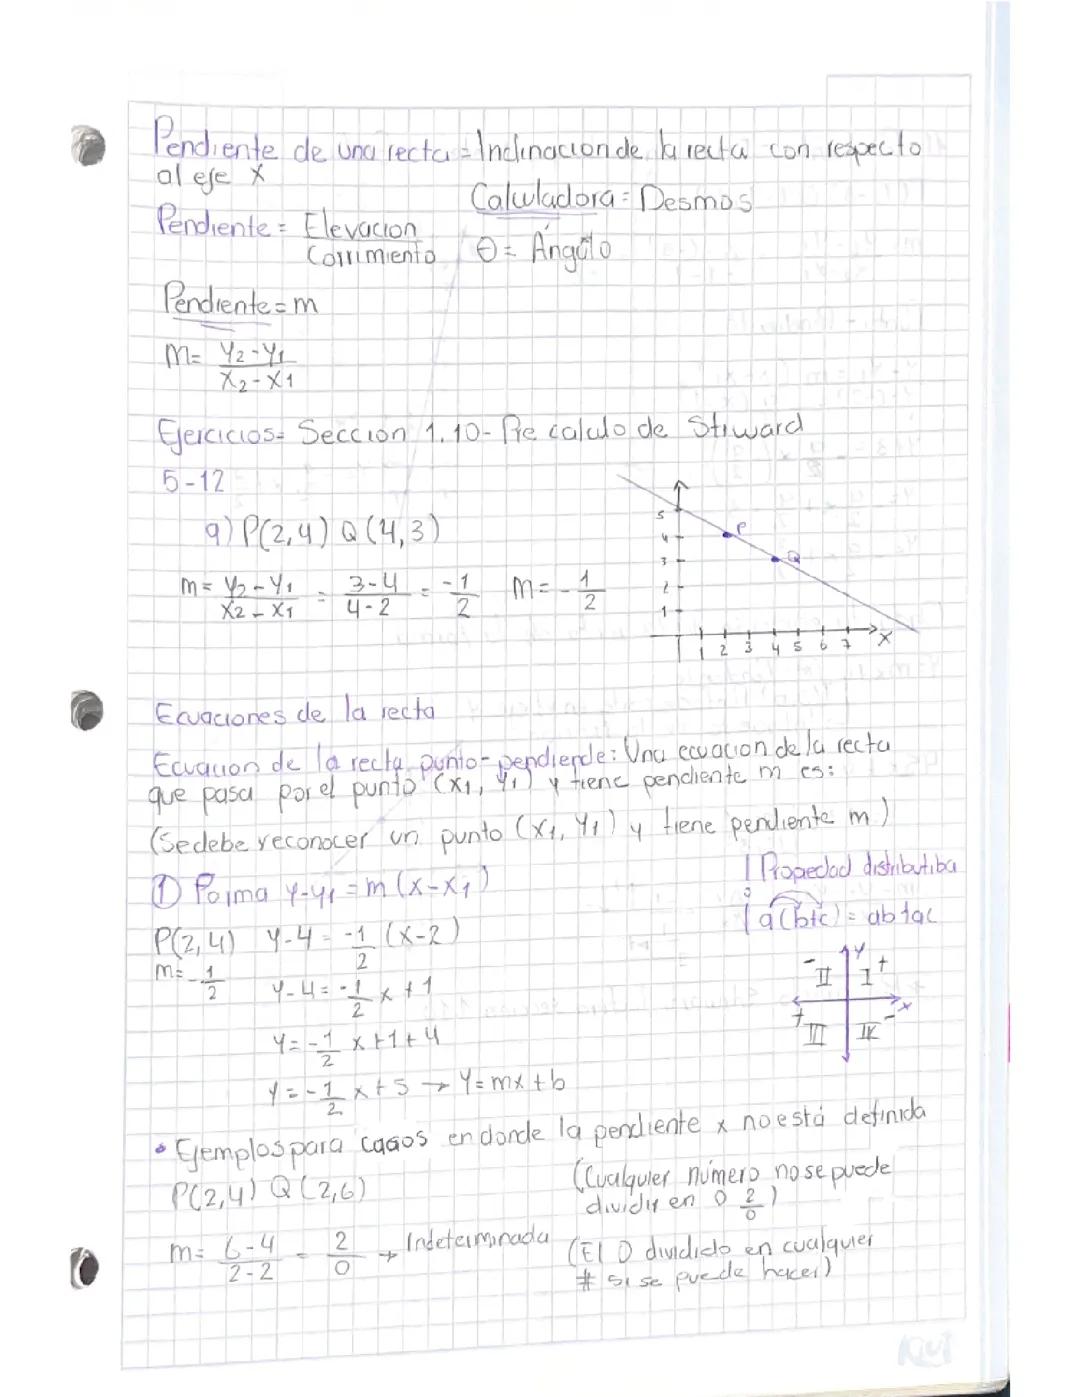 Pendiente de una recta = Inclinacion de la recta con respecto
al eje x
Calculadora = Desmos
Pendiente = Elevacion / Corrimiento
θ = Ángulo
Pendiente = m
m = y2 - y1 / x2 - x1
Ejercicios = Sección 1.10 - Pre calculo de Stiward
5-12
9) P(2,4) Q(4,3)
m = y2 - y1 / x2 - x1 = 3-4 / 4-2 = -1/2 m = -1/2
5
4
3
2
1
P
Q
1 2 3 4 5 6 7 x
Ecuaciones de la recta
Ecuacion de la recta punto-pendiende: Una ecuacion de la recta
que pasa por el punto (x1, y1) y tiene pendiente m es:
(Se debe reconocer un punto (x1, y1) y tiene pendiente m)
① Forma y-y1 = m(x-x1)
Propedad distributiba
a(b+c) = ab+ac
P(2,4) y-4 = -1/2 (x-2)
m = -1/2
y-4 = -1/2 x + 1
y = -1/2 x + 1 + 4
y = -1/2 x + 5 → y = mx + b
y
- II I +
x
+ III IV -
• Ejemplos para casos en donde la pendiente x no está definida
P(2,4) Q(2,6)
(Cualquier número no se puede
dividir en 0 2/0)
m = 6-4 / 2-2 = 2/0 → Indeterminada
(El 0 dividido en cualquier
# si se puede hacer)